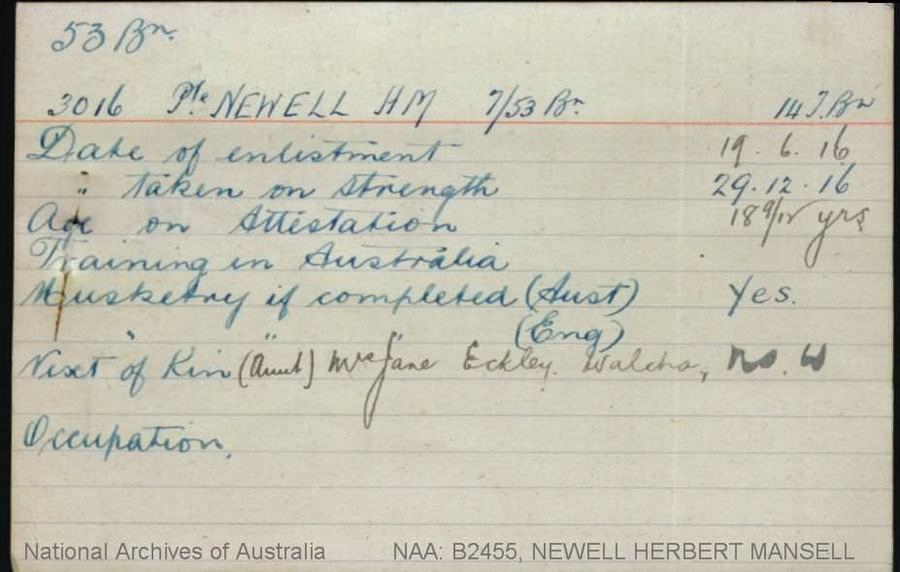 53 Bn.
3016 Pte NEWELL H M 7/53 Bn. 14 T. Bn
Date of enlistment 19. 6. 16
" taken on Strength 29. 12. 16
Age on Attestation 18 9/12 yrs
Training in Australia
Musketry if completed (Aust) Yes.
" " " (Eng)
Next of Kin (Aunt) Mrs Jane Eckley. Walcha, N.S.W
Occupation.
National Archives of Australia NAA: B2455, NEWELL HERBERT MANSELL